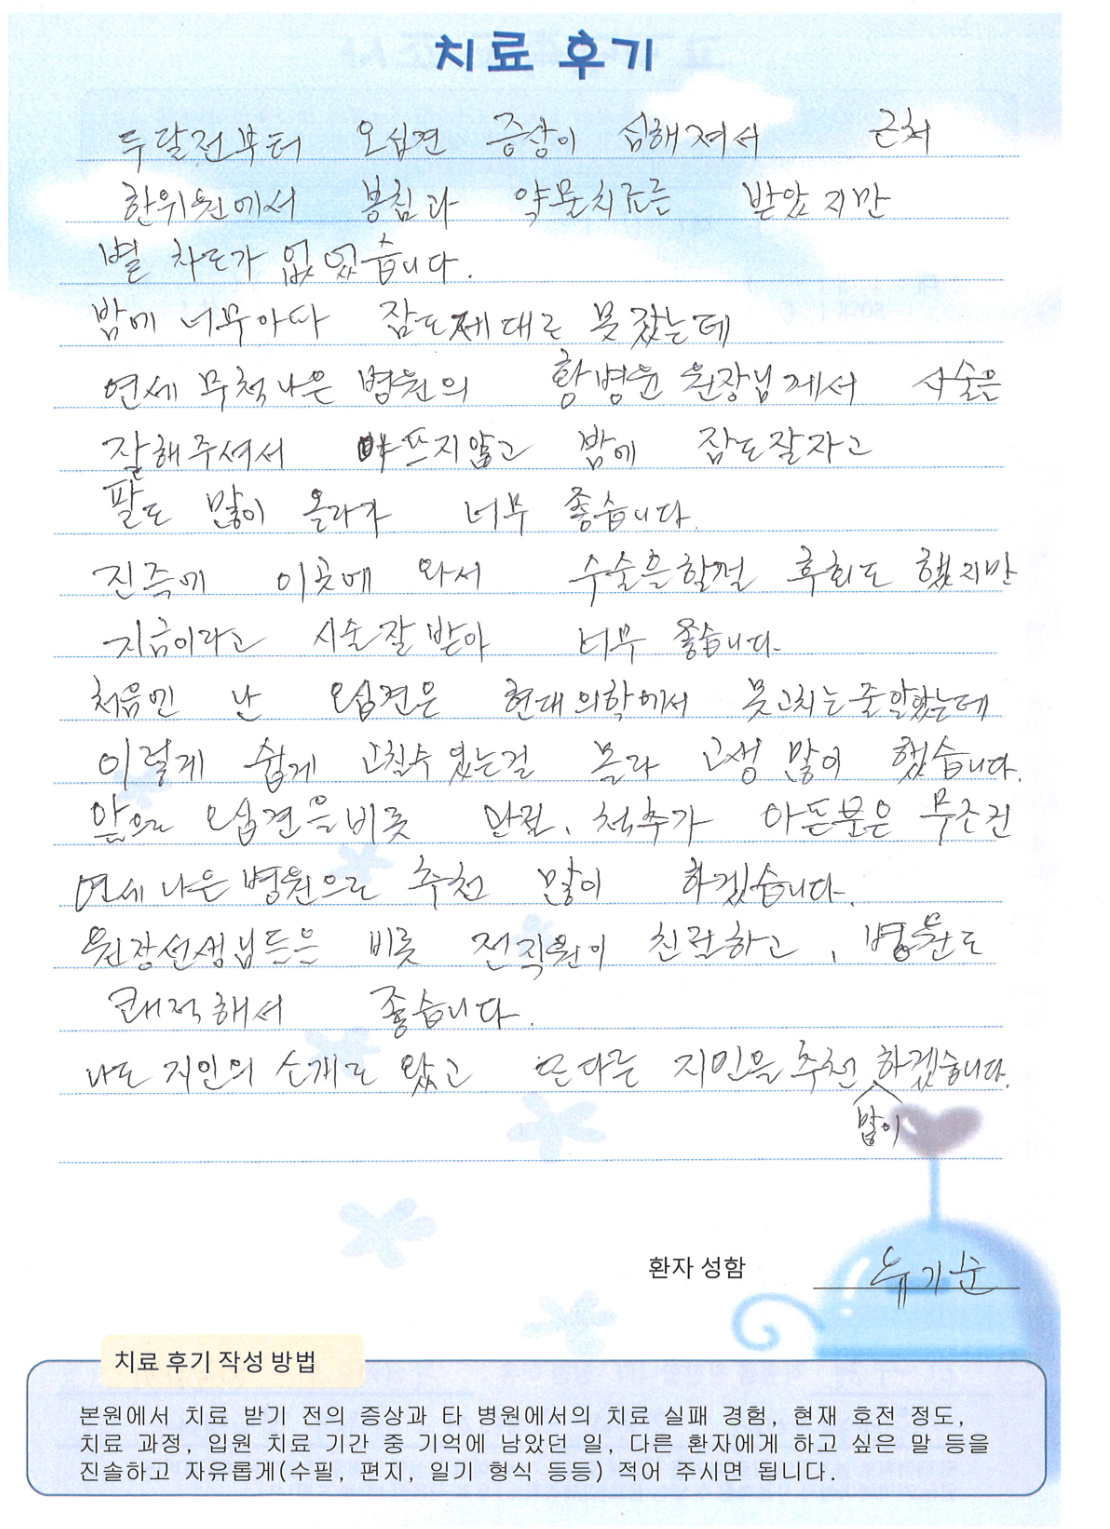 치료 후기
두달전부터 오십견 증상이 심해져서 근처
한위원에서 봉침과 약물치료를 받았지만
별 차도가 없었습니다.
밤에 너무아파 잠도제대로 못잤는데
연세 무척나은 병원의 황병윤 원장님께서 시술을
잘해주셔서 아프지않고 밤에 잠도잘자고
팔도 많이 올라가 너무 좋습니다.
진즉에 이곳에 와서 수술을할껄 후회도 했지만
지금이라고 시술잘받아 너무 좋습니다.
처음엔 난 오십견은 현대의학에서 못고치는줄알았는데
이렇게 쉽게 고칠수있는걸 몰라 고생 많이 했습니다.
앞으로 오십견을비롯 관절, 척추가 아픈분은 무조건
연세나은병원으로 추천 많이 하겠습니다.
원장선생님들을 비롯 전직원이 친절하고, 병원도
쾌적해서 좋습니다.
나도 지인의 소개로 왔고 또다른 지인을추천 하겠습니다.
많이
환자 성함 유기순
치료 후기 작성 방법
본원에서 치료 받기 전의 증상과 타 병원에서의 치료 실패 경험, 현재 호전 정도,
치료 과정, 입원 치료 기간 중 기억에 남았던 일, 다른 환자에게 하고 싶은 말 등을
진솔하고 자유롭게(수필, 편지, 일기 형식 등등) 적어 주시면 됩니다.